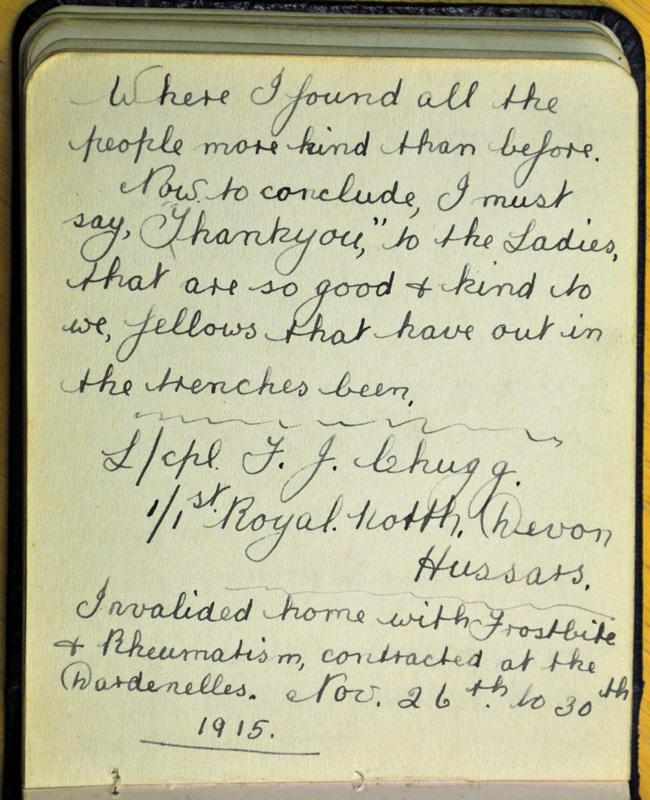 Where I found all the
people more kind than before.
Now to conclude, I must
say, "Thankyou," to the Ladies,
that are so good & kind to
we, fellows that have out in
the trenches been.
L/cpl. F. J. Chugg.
1/1st Royal North, Devon
Hussars.
Invalided home with Frostbite
& Rheumatism, contracted at the
Dardenelles. Nov. 26th. to 30th
1915.